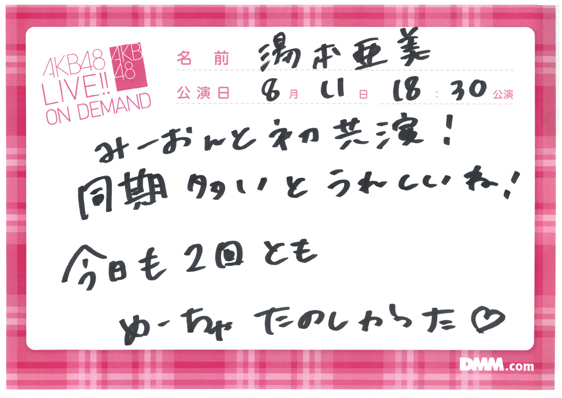 AKB48
LIVE!!
ON DEMAND
AKB
48
名前 湯本亜美
公演日 8月11日 18:30公演
みーおんと初共演!
同期多いとうれしいね!
今日も2回とも
めーちゃたのしかった♡
DMM.com